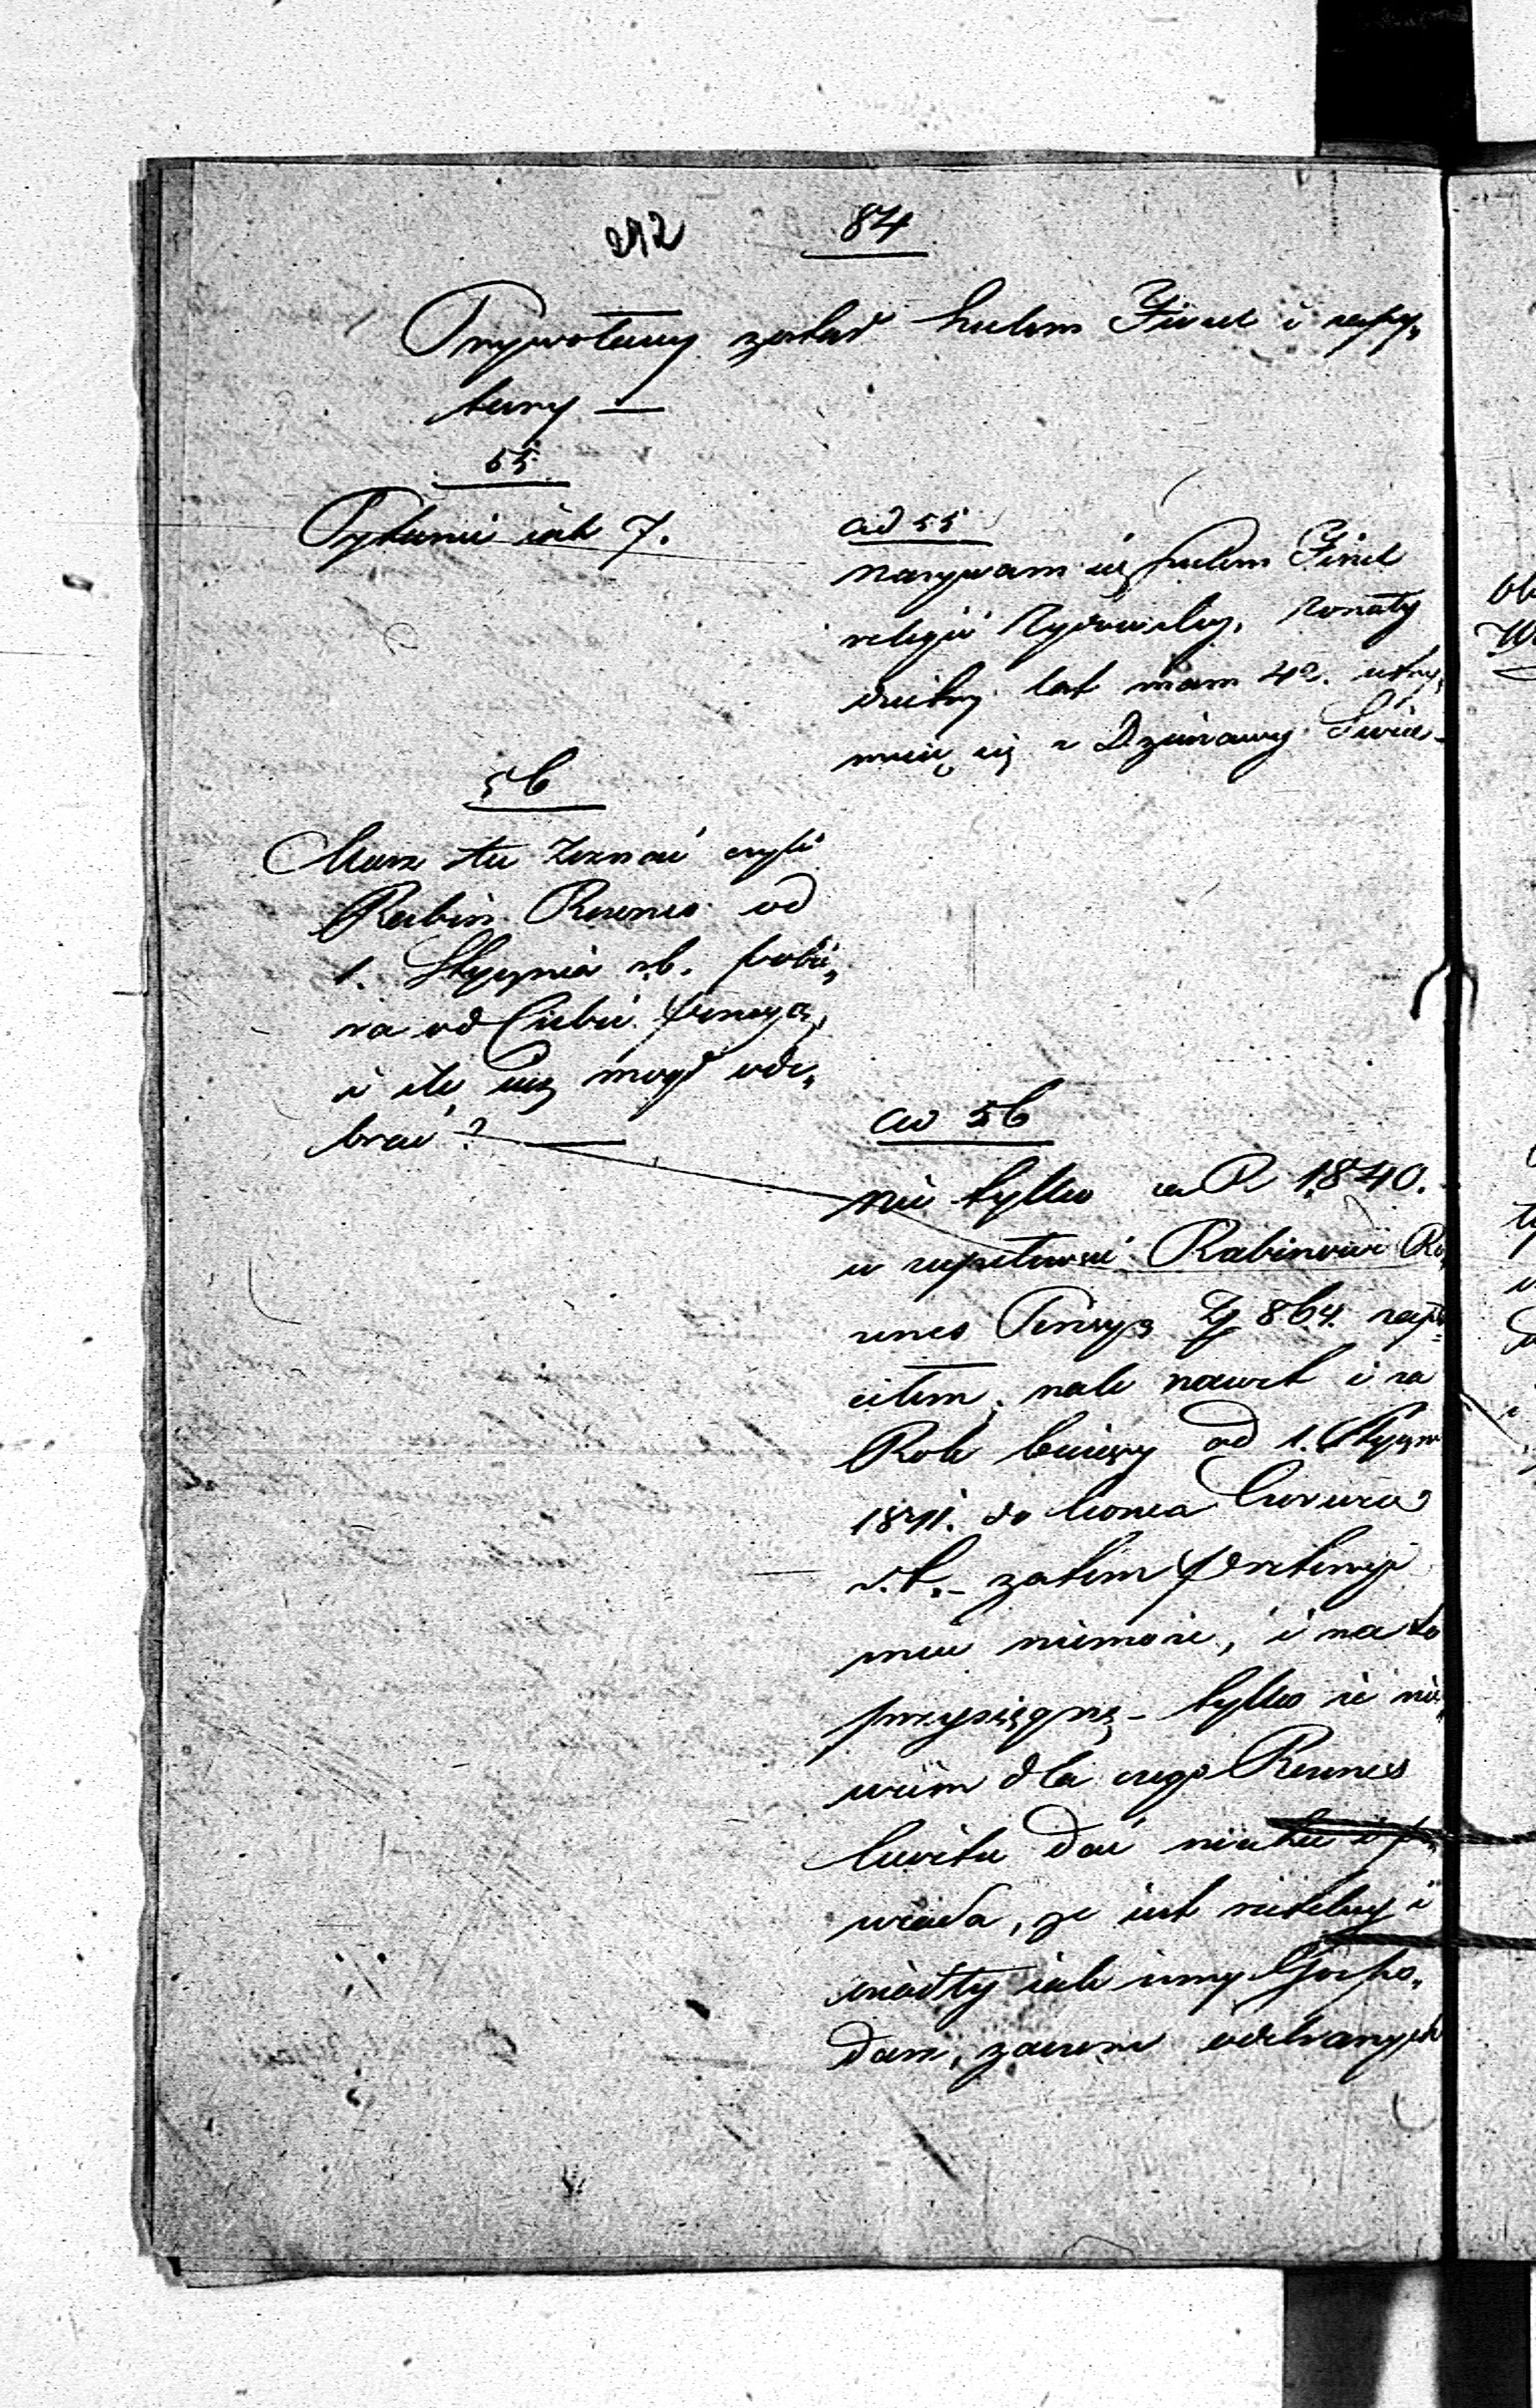 292 84
Przywołany został Sulem Finel i zapy„
tany —
55
Pytanie iak 7.
ad 55
Nazywam się Sulem Finel
religii Żydowskiey, żonaty
dzietny lat mam 42. utrzy„
muię się z Dzierżawy
56
Masz tu zeznać czyli
Rabin Reines od
1. Stycznia r.b. pobie„
ra od Ciebie pensyą,
i ile iuż mógł ode„
brać? —
ad 56
nie tylko za R 1840.
w zupełności Rabinowi Re„
ines Pensyą Zł 864. zapła
ciłem, ale nawet i za
Rok bieżący od 1. Styczn
1841. do końca Czerwca
r.b. – zatem pretensyi
mieć niemoże, i na to
przysięgnę – tylko że nie„
wiem dla czego Reines
kwitu dać niechce i po„
wiada, że iest rzetelny i
iak inny Gospo„
darz, zaczem odebranych